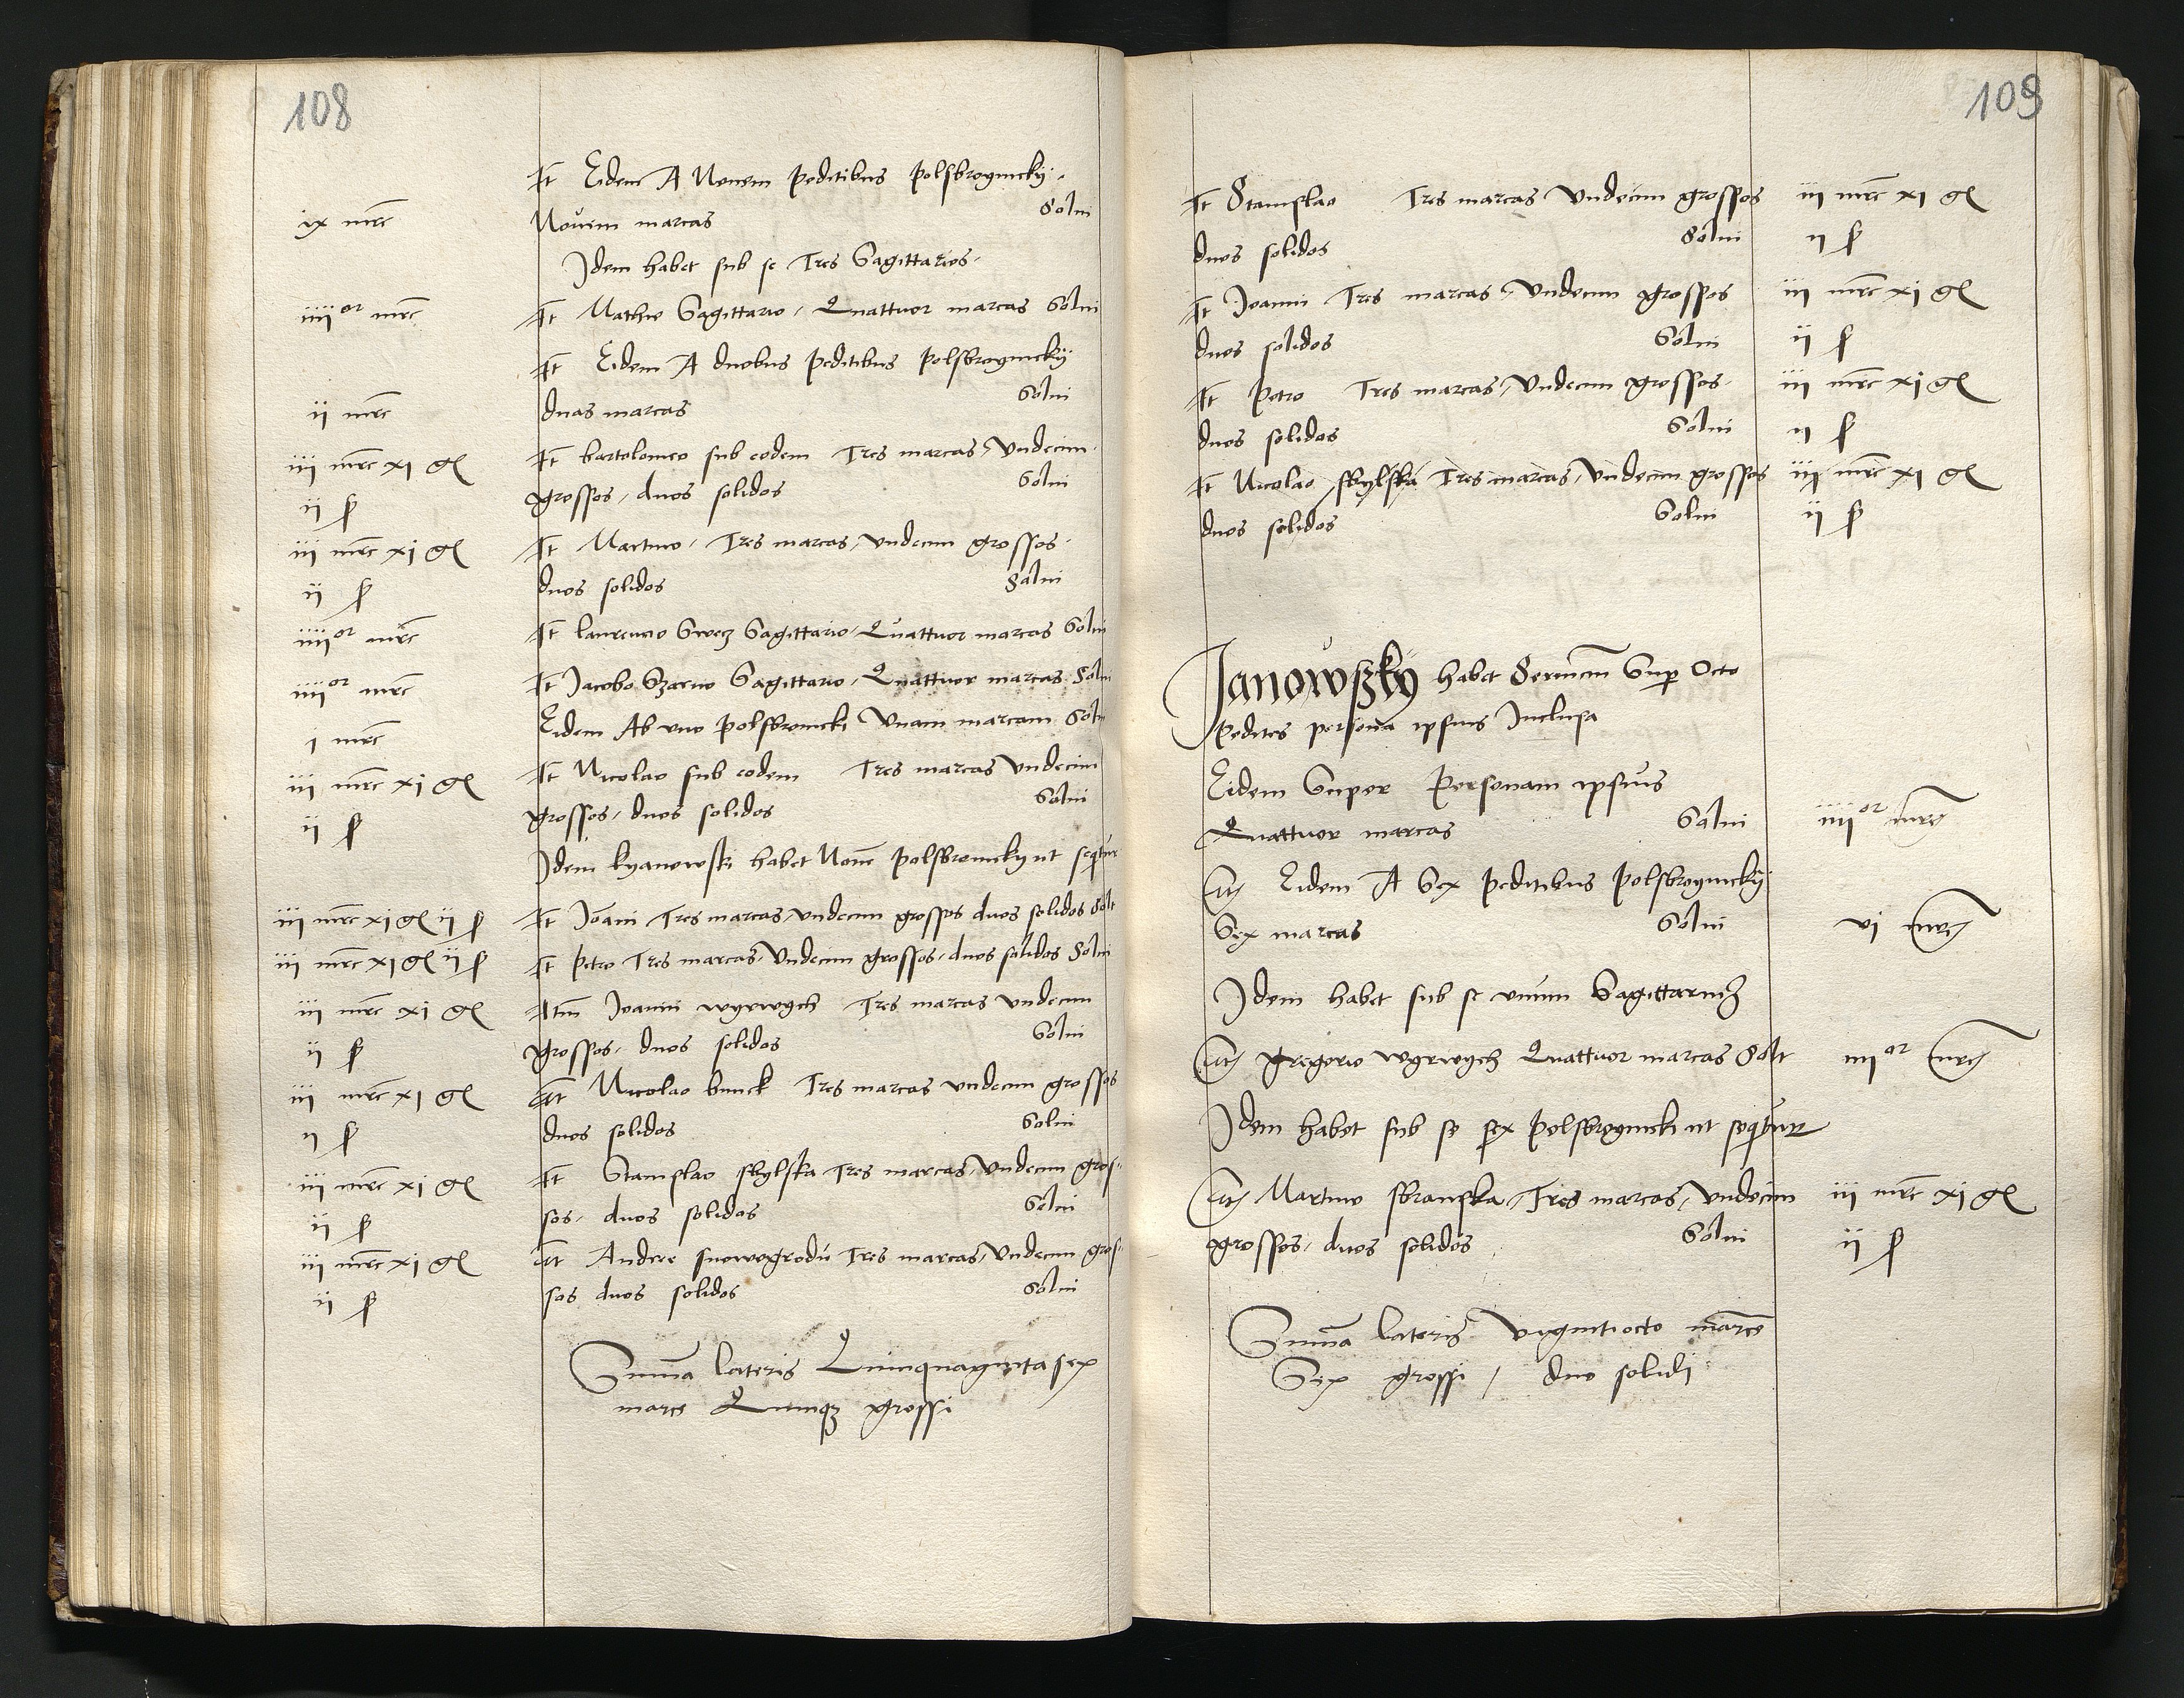 108
It Eidem A Novem peditibus polsbroynicky
ix mrc Novem marcas Solui
Idem habet sub se Tres Sagittarios
iiii or mrc It Mathie Sagittario Quattuor marcas Solui
It Eidem A duobus peditibus polsbroynicky
ii mrc duas marcas Solui
iii mrc xi gl It bartolomeo sub eodem Tres marcas Undecim
ii ꝑ grossos duos solidos Solui
iii mrc xi gl It Martino Tres marcas undecim grossos
ii ꝑ duos solidos Solui
iiii or mrc It laurencio Swecz Sagittario Quattuor marcas Solui
iiii or mrc It Jacobo Szarno Sagittario Quattuor marcas Solui
i mrc Eidem Ab uno polsbronicki Unam marcam Solui
iii mrc xi gl It Nicolao sub eodem Tres marcas undecim
ii ꝑ grossos duos solidos Solui
Idem kyanowski habet Nove polsbronicky ut seqtur
iii mrc xi gl ii ꝑ It Joani Tres marcas undecim grossos duos solidos Solt
iii mrc xi gl ii ꝑ It petro Tres marcas Undecim grossos duos solidos Solui
iii mrc xi gl Itm Joanni wyrwych Tres marcas undecim
ii ꝑ grossos duos solidos Solui
iii mrc xi gl It Nicolao bunck Tres marcas undecim grossos
ii ꝑ duos solidos Solui
iii mrc xi gl It Stanislao skylska Tres marcas undecim gros
ii ꝑ sos duos solidos Solui
iii mrc xi gl It Andree snowogrodu Tres marcas Undecim gros
ii ꝑ sos duos solidos Solui
Summa lateris Quinquaginta sex
marce Quinqz grossi
109
It Stanislao Tres marcas Undecim grossos iii mrc xi gl
duos solidos Solui ii ꝑ
It Joanni Tres marcas Undecim grossos iii mrc xi gl
duos solidos Solui ii ꝑ
It petro Tres marcas Undecim grossos iii mrc xi gl
duos solidos Solui ii ꝑ
It Nicolao skylska Tres marcas undecim grossos iii mrc xi gl
duos solidos Solui ii ꝑ
Janowszky habet Servicium Sup Octo
Pedites persona ipsius Inclusa
Eidem Super Personam ipsius
Quattuor marcas Solui iiii or mrc
It Eidem A Sex peditibus polsbroynicky
Sex marcas Solui vi mrc
Idem habet sub se unum Sagittariuz
It gregorio wyrwych Quattuor marcas Solt iiii or mrc
Idem habet sub se sex polsbroynicki ut seqtur
It Martino sbranska Tres marcas undecim iii mrc xi gl
grossos duos solidos Solui ii ꝑ
Summa lateris vigintiocto marce
Sex grossi / duo solidi